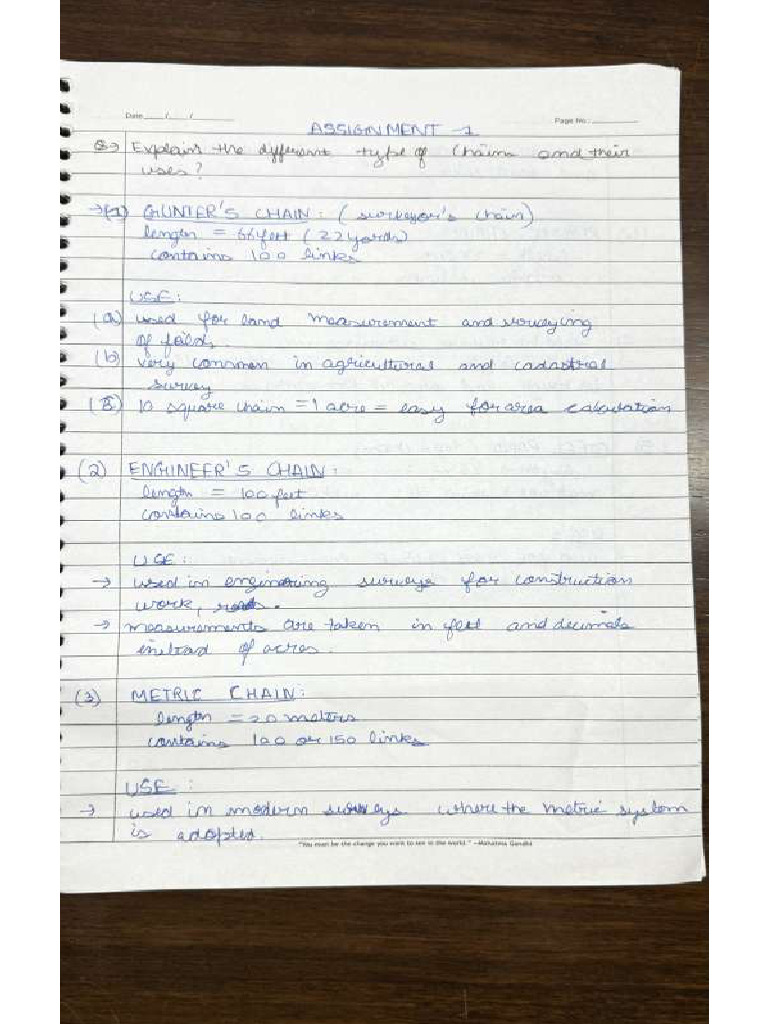 Date / /
Page No.:
ASSIGNMENT -1
Q→ Explain the different type of chain and their
uses?
→(1) GUNTER'S CHAIN: (surveyor's chain)
length = 66 feet (22 yards)
contains 100 links
USE:
(a) used for land measurement and surveying
of feilds.
(b) very common in agricultural and cadastral
survey
(B) 10 square chain = 1 acre = easy for area calculation
(2) ENGINEER'S CHAIN:
length = 100 feet
contains 100 links
USE:
→ used in enginering surveys for construction
work, roads.
→ measurements are taken in feet and decimals
instead of acres.
(3) METRIC CHAIN:
length = 20 metres
contains 100 or 150 links
USE:
→ used in modern surveys where the metric system
is adopted.
"You must be the change you want to see in the world." –Mahatma Gandhi